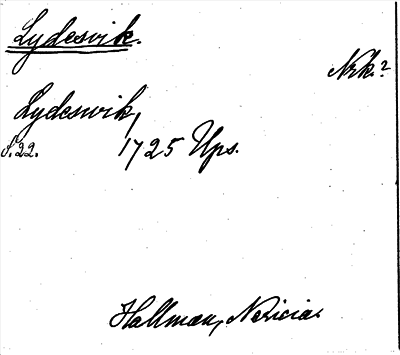 Lydesvik.
Nrk.?
Lydeswik,
S. 22. 1725 Ups.
Hallman, Nericia.